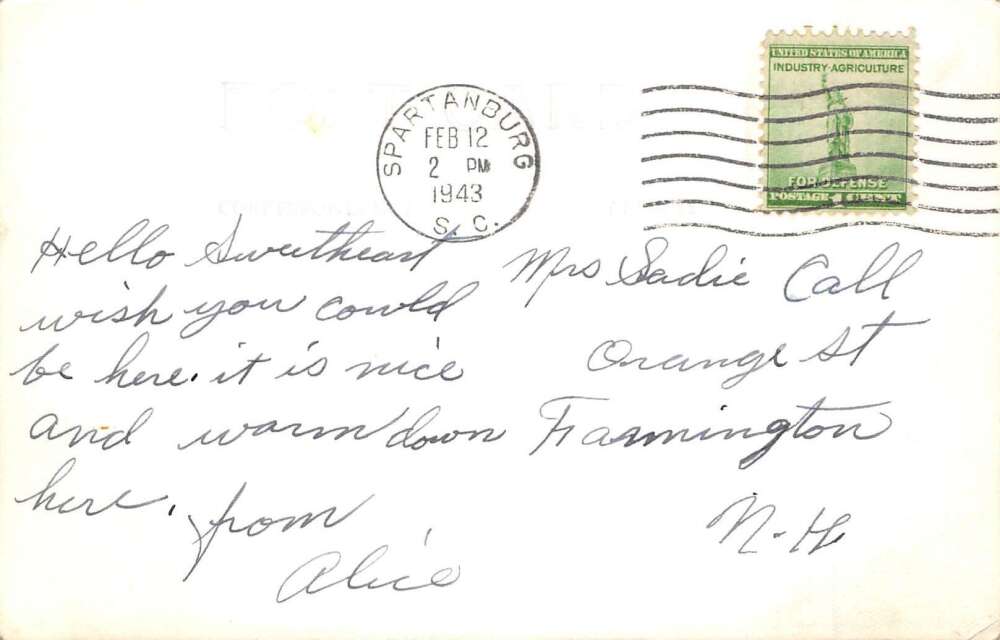 UNITED STATES OF AMERICA
INDUSTRY·AGRICULTURE
FOR DEFENSE
POSTAGE 1 CENT
SPARTANBURG
FEB 12
2 PM
1943
S. C.
Hello Sweetheart
wish you could
be here. it is nice
and warm down
here. from
Alice
Mrs Sadie Call
Orange St
Farmington
N-H